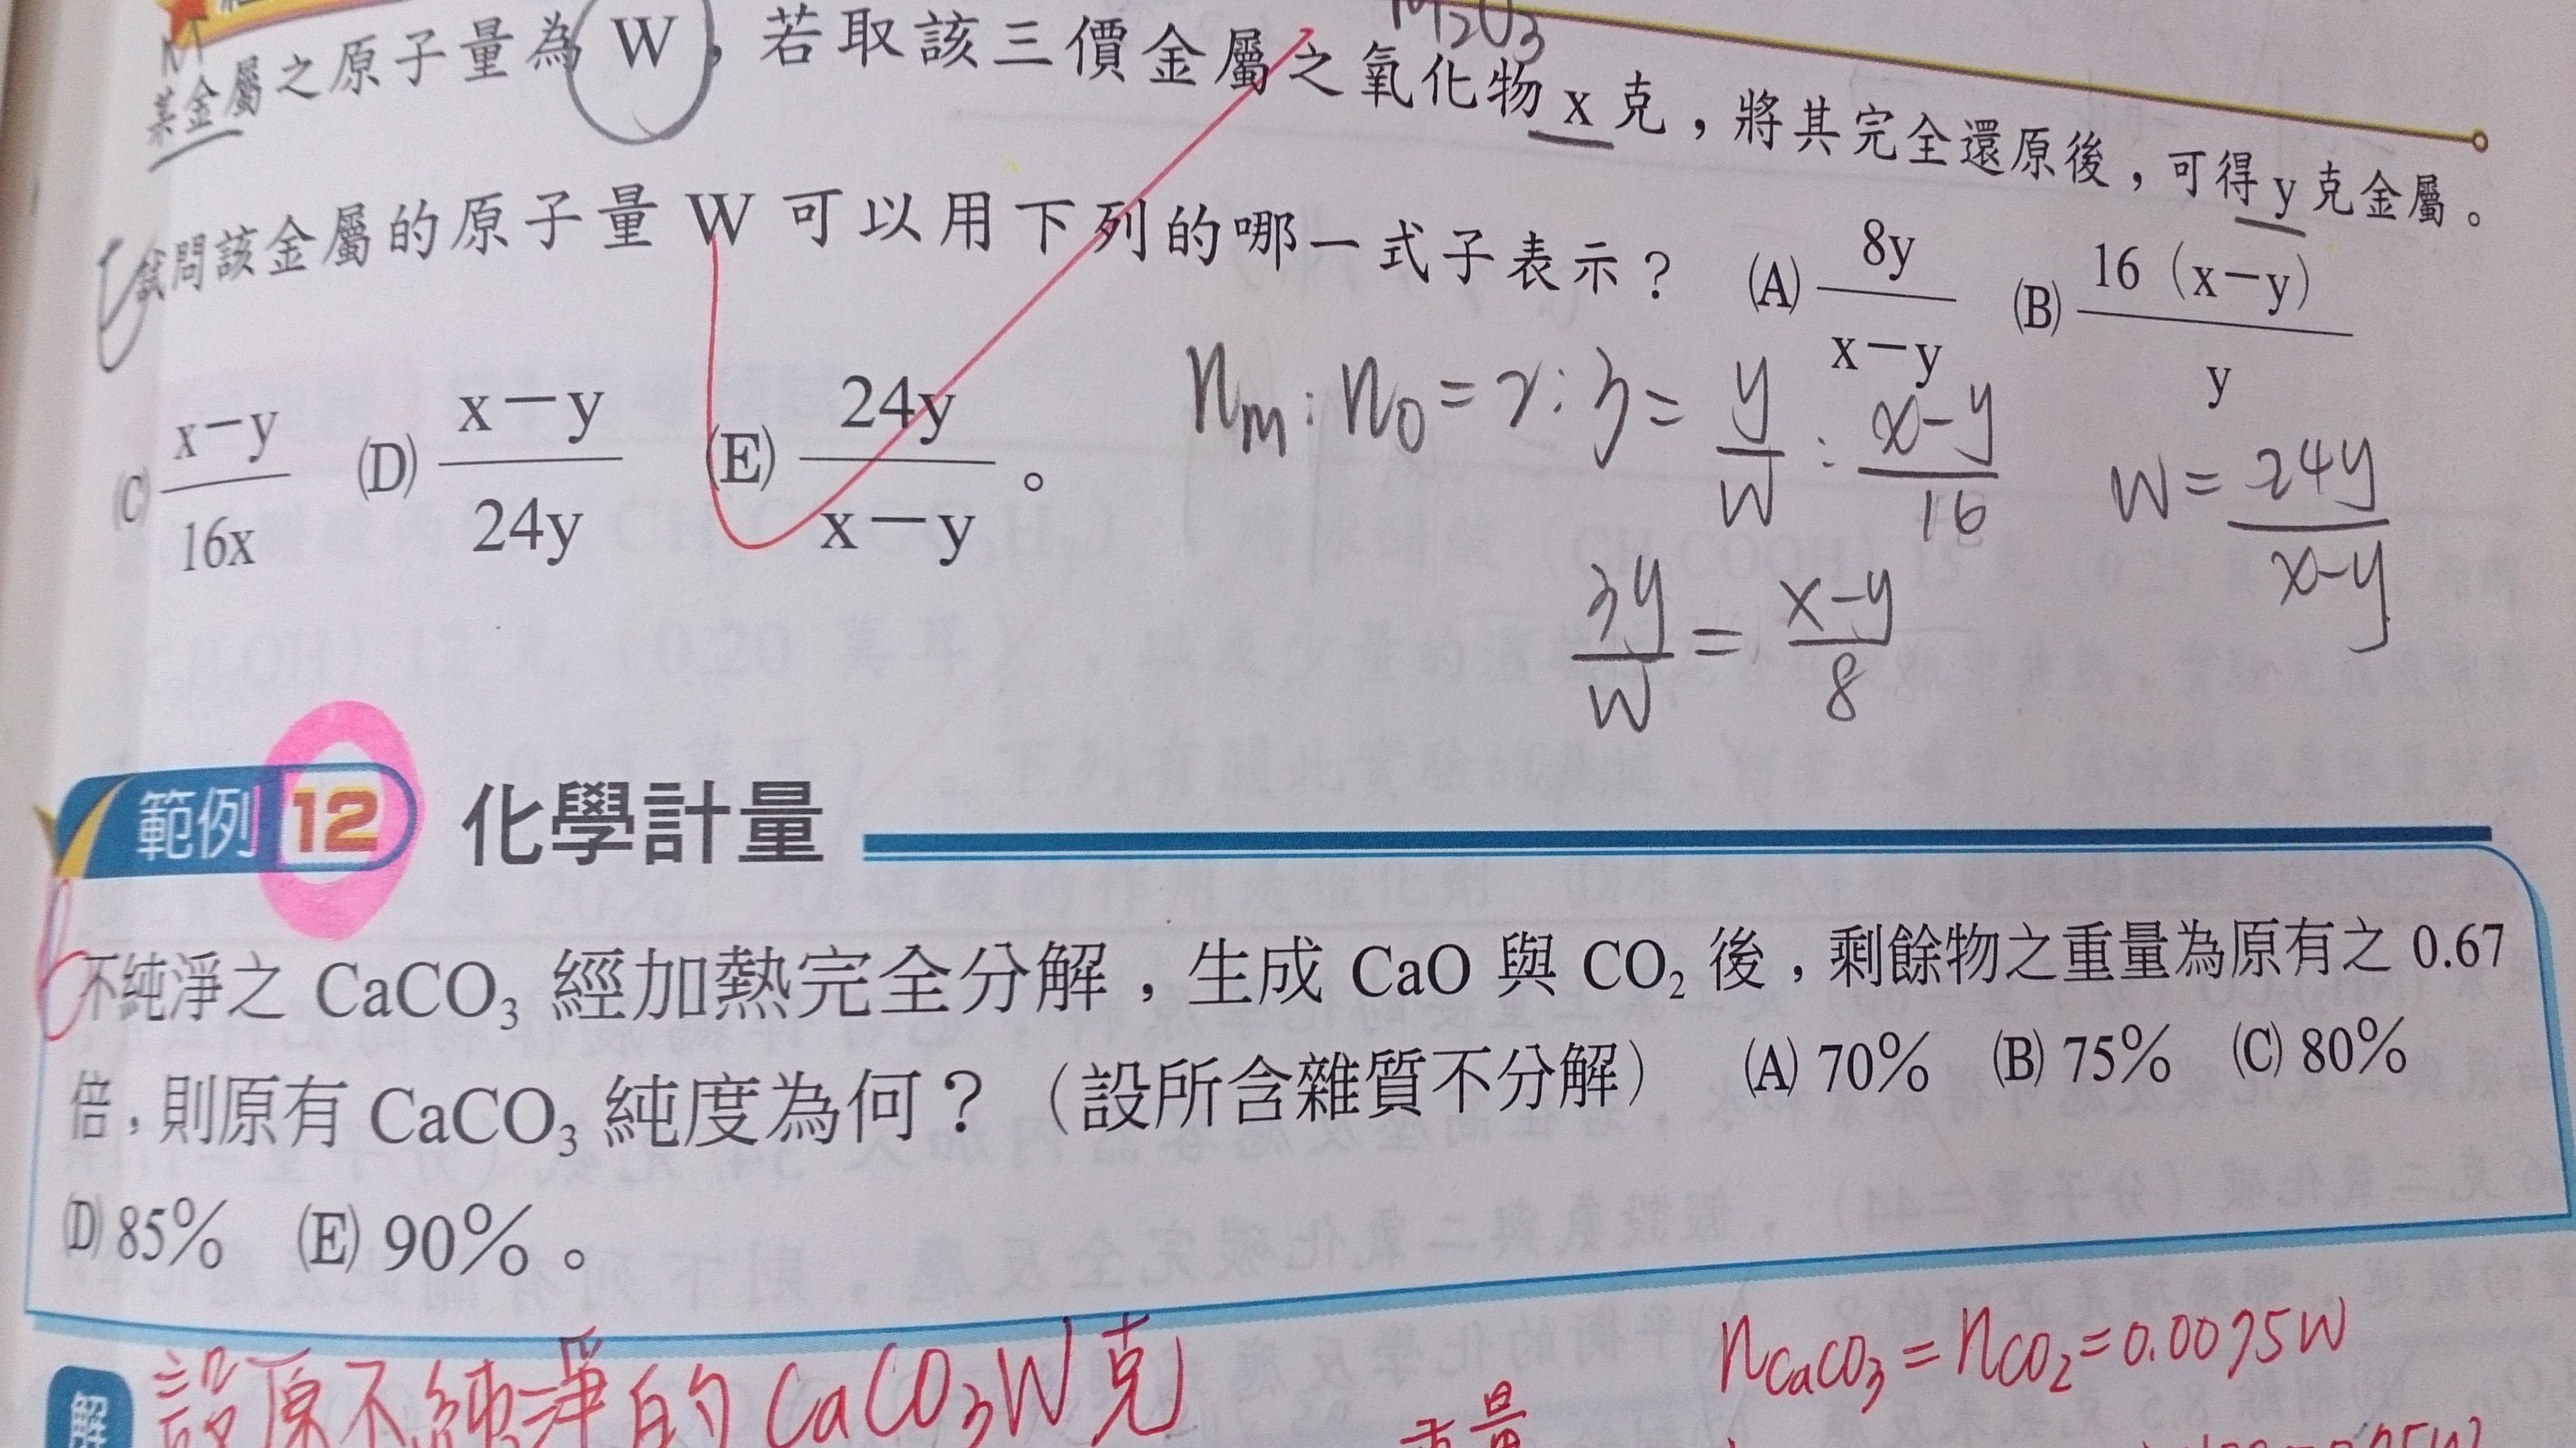 M
某金屬之原子量為 W,若取該三價金屬之氧化物 x 克,將其完全還原後,可得 y 克金屬。
M₂O₃
試問該金屬的原子量 W 可以用下列的哪一式子表示? (A) 8y/(x-y) (B) 16(x-y)/y
(C) (x-y)/16x (D) (x-y)/24y (E) 24y/(x-y)。
nm : nO = 2 : 3 = y/W : (x-y)/16
W = 24y/(x-y)
3y/W = (x-y)/8
範例 12 化學計量
不純淨之 CaCO₃ 經加熱完全分解,生成 CaO 與 CO₂ 後,剩餘物之重量為原有之 0.67
倍,則原有 CaCO₃ 純度為何?(設所含雜質不分解) (A) 70% (B) 75% (C) 80%
(D) 85% (E) 90%。
解
設原不純淨的 CaCO₃ W克
nCaCO₃ = nCO₂ = 0.0075W